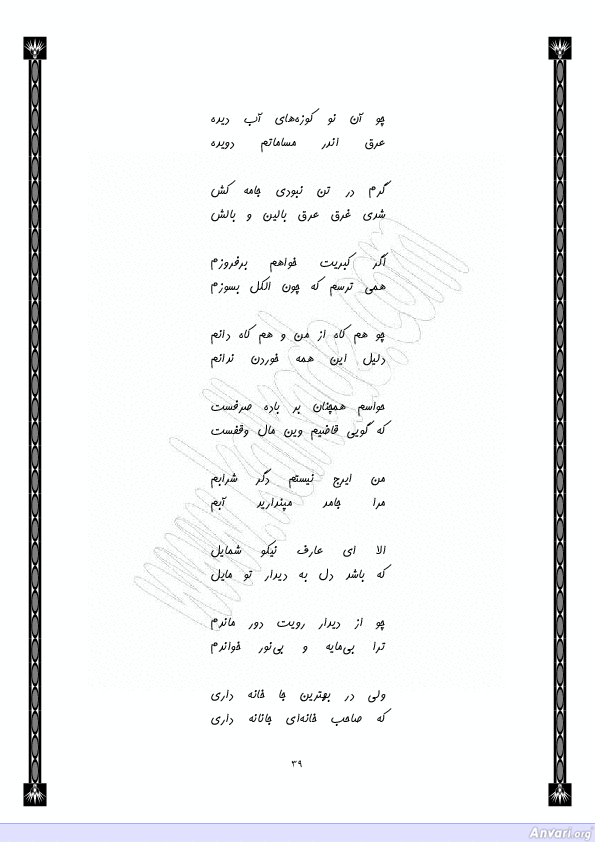 چو آن نو کوزه‌های آب دیده
عرق اندر مساماتم دویده
گرم در تن نبودی جامه کش
شدی غرق عرق بالین و بالش
اگر کبریت خواهم برفروزم
همی ترسم که چون الکل بسوزم
چو هم کاه از من و هم کاه دانم
دلیل این همه خوردن ندانم
حواسم همچنان بر باده صرفست
که گویی قاضیم وین مال وقفست
من ایرج نیستم دگر شرابم
مرا جامد مپندارید آبم
الا ای عارف نیکو شمایل
که باشد دل به دیدار تو مایل
چو از دیدار رویت دور ماندم
ترا بی‌مایه و بی‌نور خواندم
ولی در بهترین جا خانه داری
که صاحب خانه‌ای جانانه داری
۳۹
Anvari.org